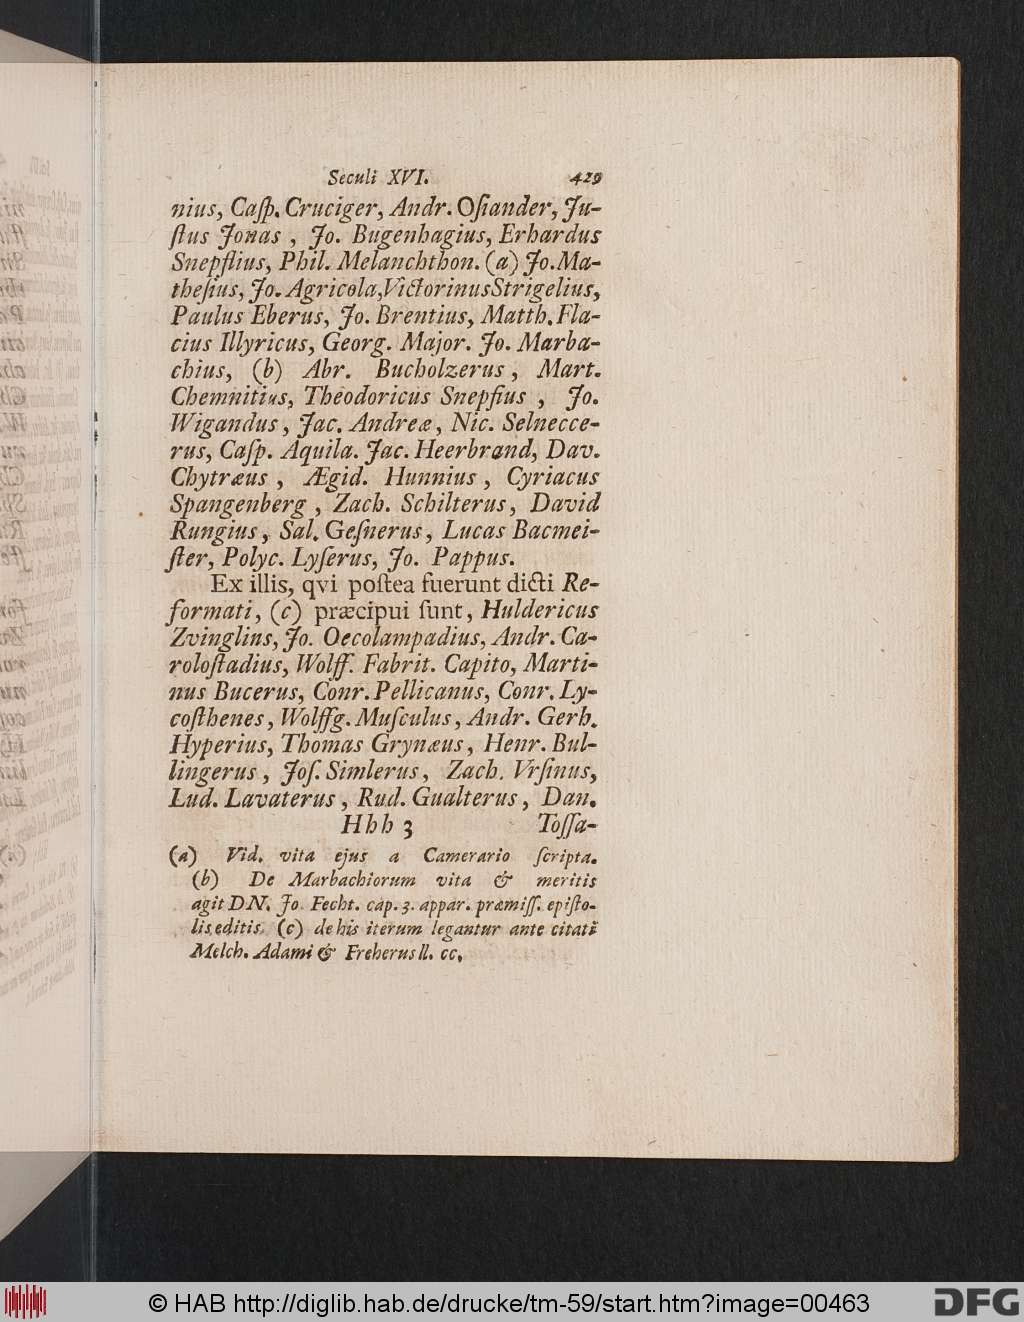 Seculi XVI. 429
nius, Caſp. Cruciger, Andr. Oſiander, Ju-
ſtus Jonas , Jo. Bugenhagius, Erhardus
Snepflius, Phil. Melanchthon. (a) Jo.Ma-
theſius, Jo. Agricola,VictorinusStrigelius,
Paulus Eberus, Jo. Brentius, Matth. Fla-
cius Illyricus, Georg. Major. Jo. Marba-
chius, (b) Abr. Bucholzerus , Mart.
Chemnitius, Theodoricus Snepfius , Jo.
Wigandus , Jac. Andreæ , Nic. Selnecce-
rus, Caſp. Aquila. Jac. Heerbrand, Dav.
Chytræus , Ægid. Hunnius , Cyriacus
Spangenberg , Zach. Schilterus, David
Rungius, Sal. Geſnerus, Lucas Bacmei-
ſter, Polyc. Lyſerus, Jo. Pappus.
Ex illis, qvi poſtea fuerunt dicti Re-
formati, (c) præcipui ſunt, Huldericus
Zvinglius, Jo. Oecolampadius, Andr. Ca-
roloſtadius, Wolff. Fabrit. Capito, Marti-
nus Bucerus, Conr. Pellicanus, Conr. Ly-
coſthenes, Wolffg. Muſculus, Andr. Gerh.
Hyperius, Thomas Grynæus, Henr. Bul-
lingerus , Joſ. Simlerus, Zach. Vrſinus,
Lud. Lavaterus, Rud. Gualterus, Dan.
Hhh 3 Toſſa-
(a) Vid. vita ejus a Camerario ſcripta.
(b) De Marbachiorum vita & meritis
agit DN. Jo. Fecht. cap. 3. appar. præmiſſ. epiſto-
lis editis. (c) de his iterum legantur ante citati
Melch. Adami & Freherus ll. cc.
© HAB http://diglib.hab.de/drucke/tm-59/start.htm?image=00463
DFG